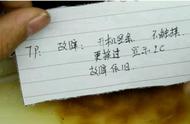 TP. 故障: 开机显示 不触摸.
更换过 显示IC
故障依旧.